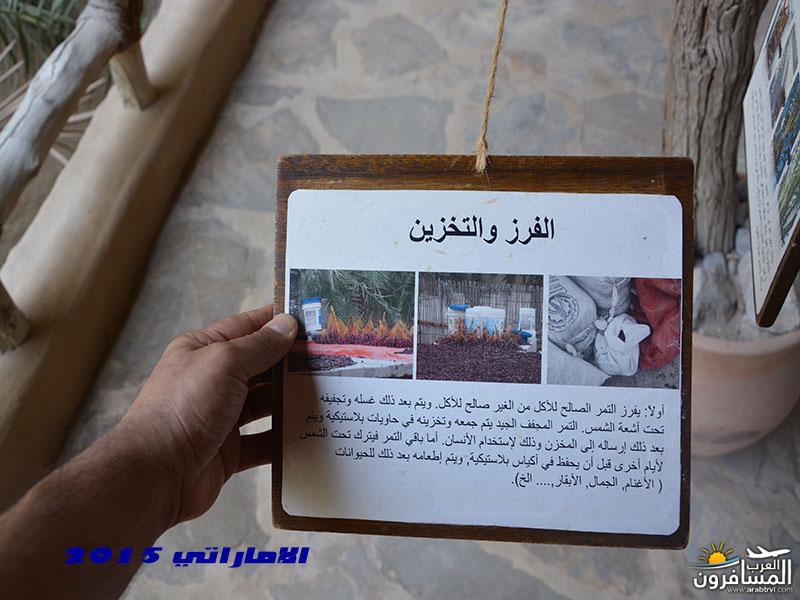 الفرز والتخزين
أولا: يفرز التمر الصالح للأكل من الغير صالح للأكل. ويتم بعد ذلك غسله وتجفيفه
تحت أشعة الشمس. التمر المجفف الجيد يتم جمعه وتخزينه في حاويات بلاستيكية ويتم
بعد ذلك إرساله إلى المخزن وذلك لإستخدام الأنسان. أما باقي التمر فيترك تحت الشمس
لأيام أخرى قبل أن يحفظ في أكياس بلاستيكية, ويتم إطعامه بعد ذلك للحيوانات
( الأغنام, الجمال, الأبقار,.... الخ).
الاماراتي 2015
العرب
المسافرون
www.arabtrvl.com